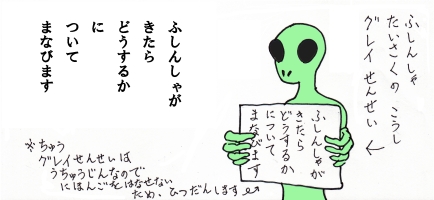 ふしんしゃ
たいさくの こうし
グレイ せんせい
ふしんしゃが
きたら
どうするか
に
ついて
まなびます
ふしんしゃが
きたら
どうするか
について
まなびます
※ちゅう
グレイせんせいは
うちゅうじんなので
にほんごをはなせない
ため、ひつだんします